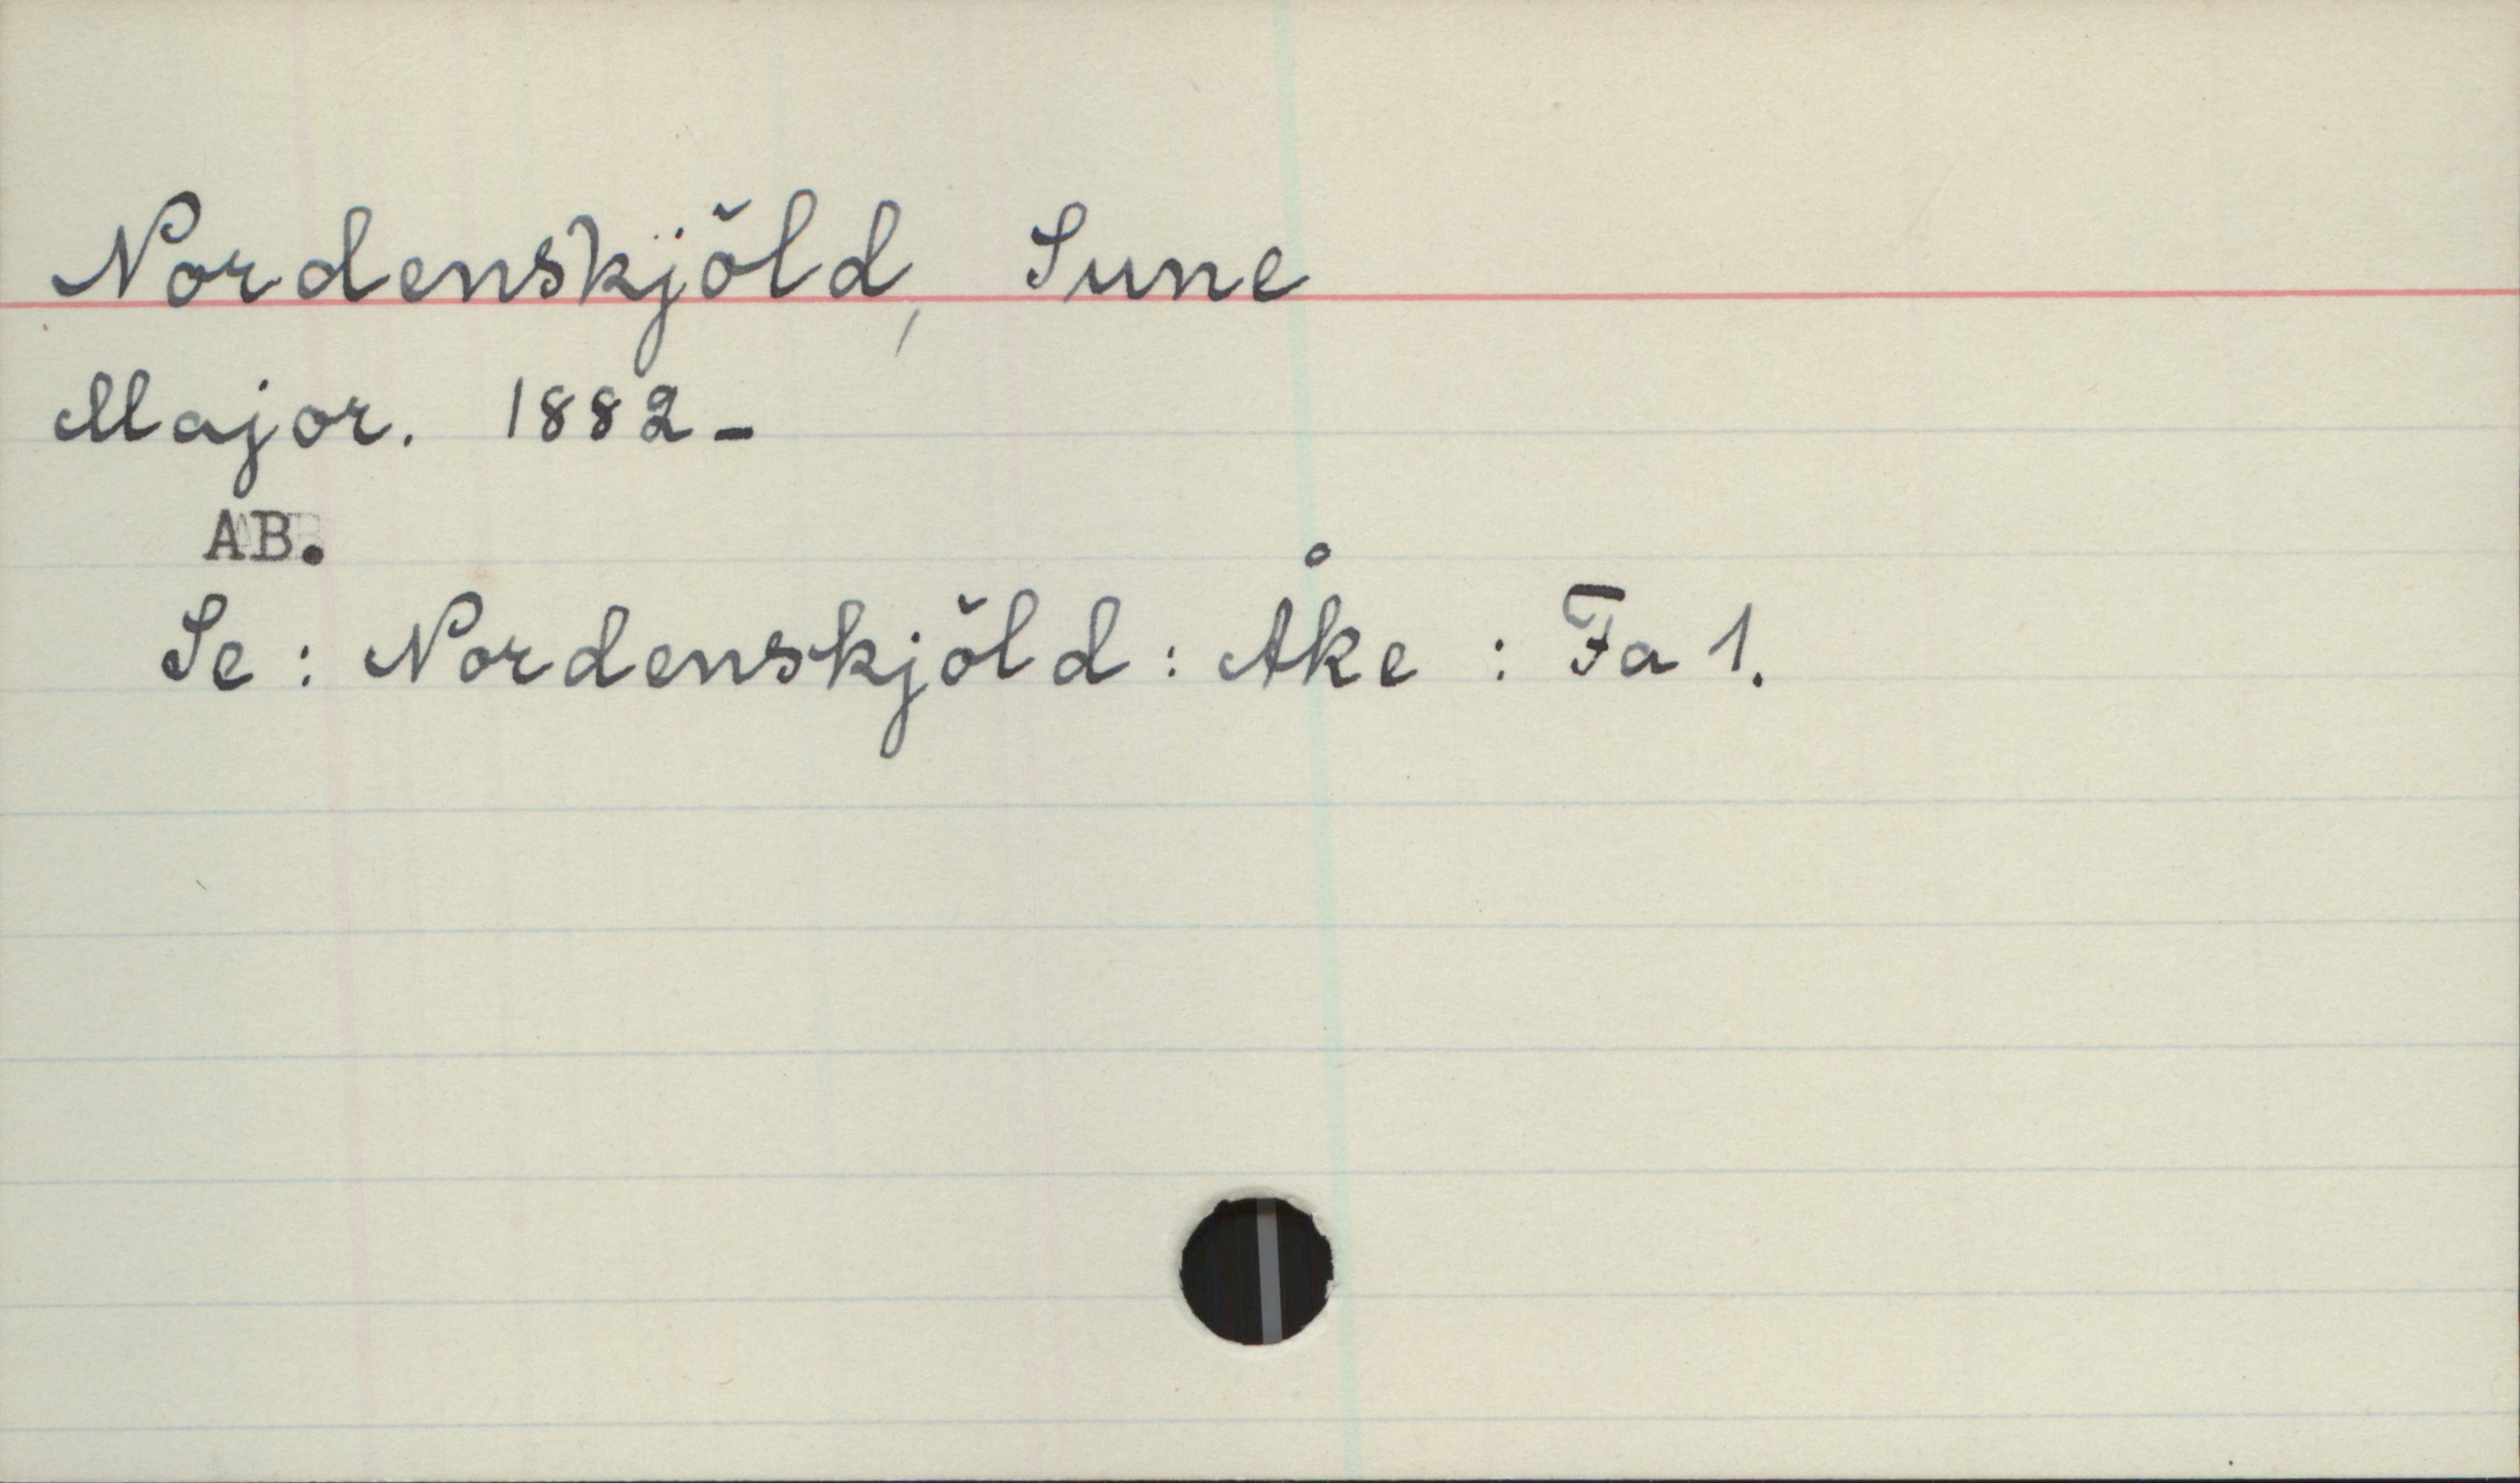 Nordenskjöld, Sune
Major. 1882-
AB.
Se: Nordenskjöld: Åke : Fa 1.